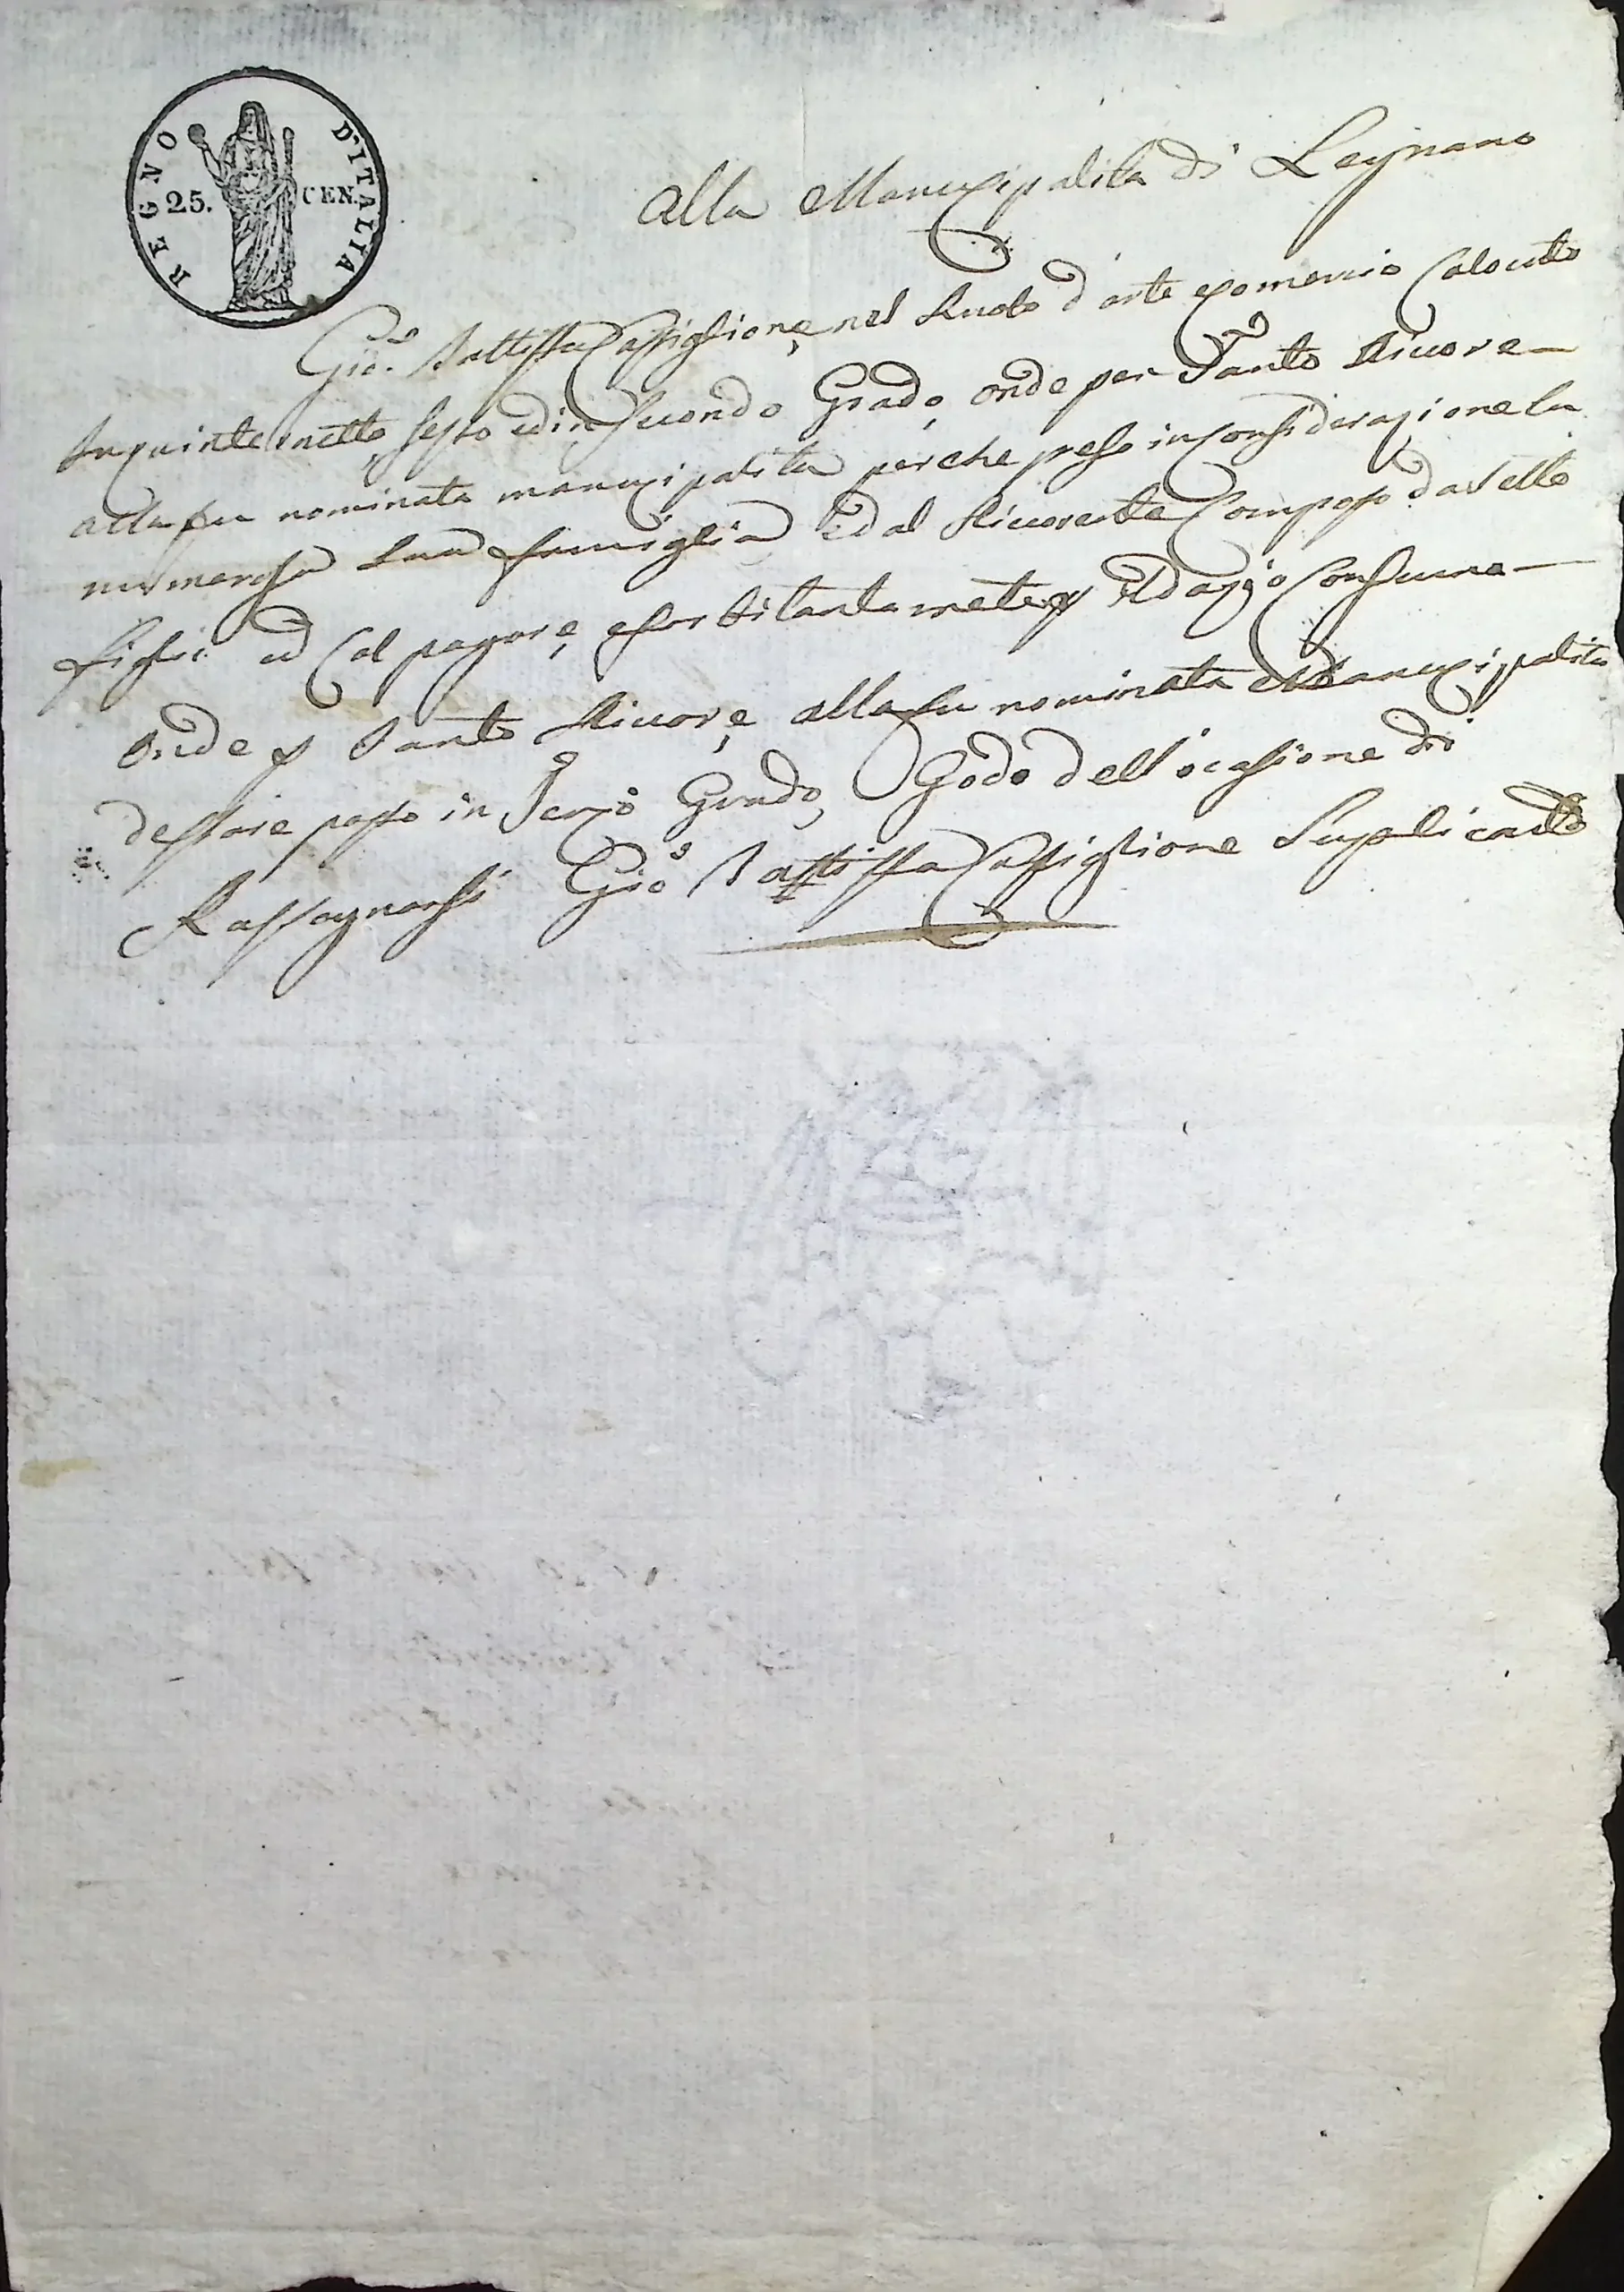 REGNO D'ITALIA
25. CEN.
Alla Manucipalita di Legnano
Gio. Battista Castiglione nel Ruolo d'arte e comercio
messo ed in Secondo Grado, onde per Tanto Ricore
alla su nominata manucipalita perche preso in Considerazione la
numerosa sua famiglia ed al Ricorente Composo da sette
figli ed Col pagare, esorbitantamete il dazio Consumo
Onde p Tanto Ricore, alla su nominata Manucipalita
desser posto in Terzo Grado, Godo dell'ocasione di
Rassegnarsi Gio Battista Castiglione Suplicante